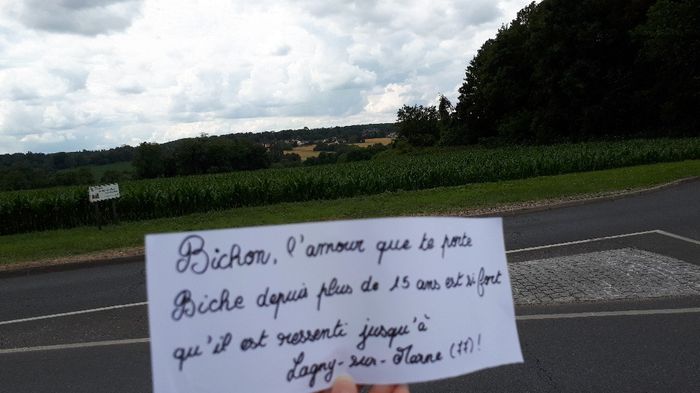 Bichon, l'amour que te porte
Biche depuis plus de 15 ans est si fort
qu'il est ressenti jusqu'à
Lagny-sur-Marne (77)!